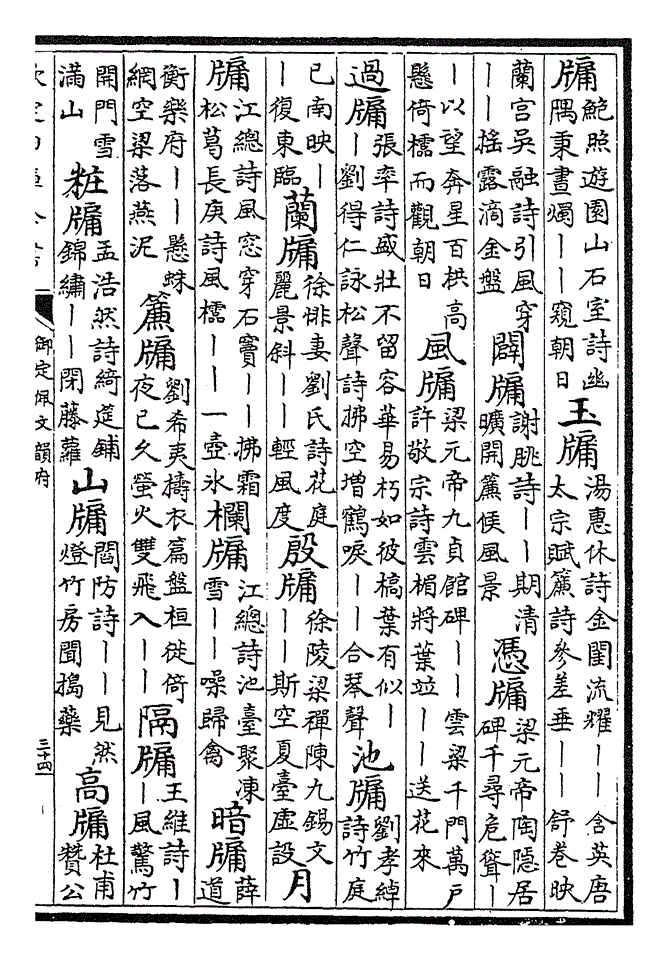 牖鮑照遊園山石室詩幽隅秉晝燭丨丨窺朝日玉牖湯惠休詩金閨流耀丨丨含英唐太宗賦簾詩參差垂丨丨舒卷映
蘭宫吳融詩引風穿丨丨摇露滴金盤闢牖謝朓詩丨丨期清曠開簾候風景憑牖梁元帝陶隱居碑千尋危聳丨
丨以望奔星百栱高懸倚檽而觀朝日風牖梁元帝九貞館碑丨丨雲梁千門萬戶許敬宗詩雲楣將葉竝丨丨送花來
過牖張率詩盛壮不留容華易朽如彼槁葉有似丨丨劉得仁詠松聲詩拂空增鶴唳丨丨合琴聲池牖劉孝綽詩竹庭
已南映丨丨復東臨蘭牖徐悱妻劉氏詩花庭麗景斜丨丨輕風度殷牖徐陵梁禪陳九錫文丨丨斯空夏臺虛設月
牖江總詩風窓穿石竇丨丨拂霜松葛長庚詩風檽丨丨一壺氷欄牖江總詩池臺聚凍雪丨丨噪歸禽暗牖薛道
衡樂府丨丨懸蛛網空梁落燕泥簾牖劉希夷擣衣篇盤桓徙倚夜已久螢火雙飛入丨丨隔牖王維詩丨丨風驚竹
開門雪滿山粧牖孟浩然詩綺筵鋪錦繡丨丨閉藤蘿山牖閻防詩丨丨見然燈竹房聞搗藥高牖杜甫贊公
御定佩文韻府
三十四